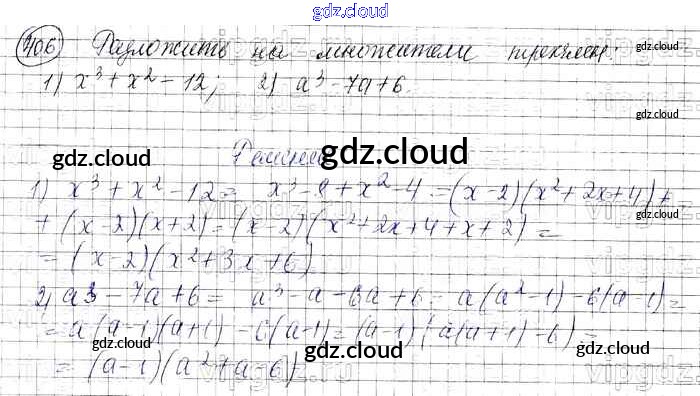 gdz.cloud
406 Разложить на множители трехчлен:
1) x³ + x² - 12; 2) a³ - 7a + 6.
gdz.cloud
gdz.cloud
gdz.cloud
1) x³ + x² - 12 = x³ - 8 + x² - 4 = (x - 2)(x² + 2x + 4) +
+ (x - 2)(x + 2) = (x - 2)(x² + 2x + 4 + x + 2) =
= (x - 2)(x² + 3x + 6)
2) a³ - 7a + 6 = a³ - a - 6a + 6 = a(a² - 1) - 6(a - 1) =
= a(a - 1)(a + 1) - 6(a - 1) = (a - 1)(a(a + 1) - 6) =
= (a - 1)(a² + a - 6)
gdz.cloud
gdz.cloud